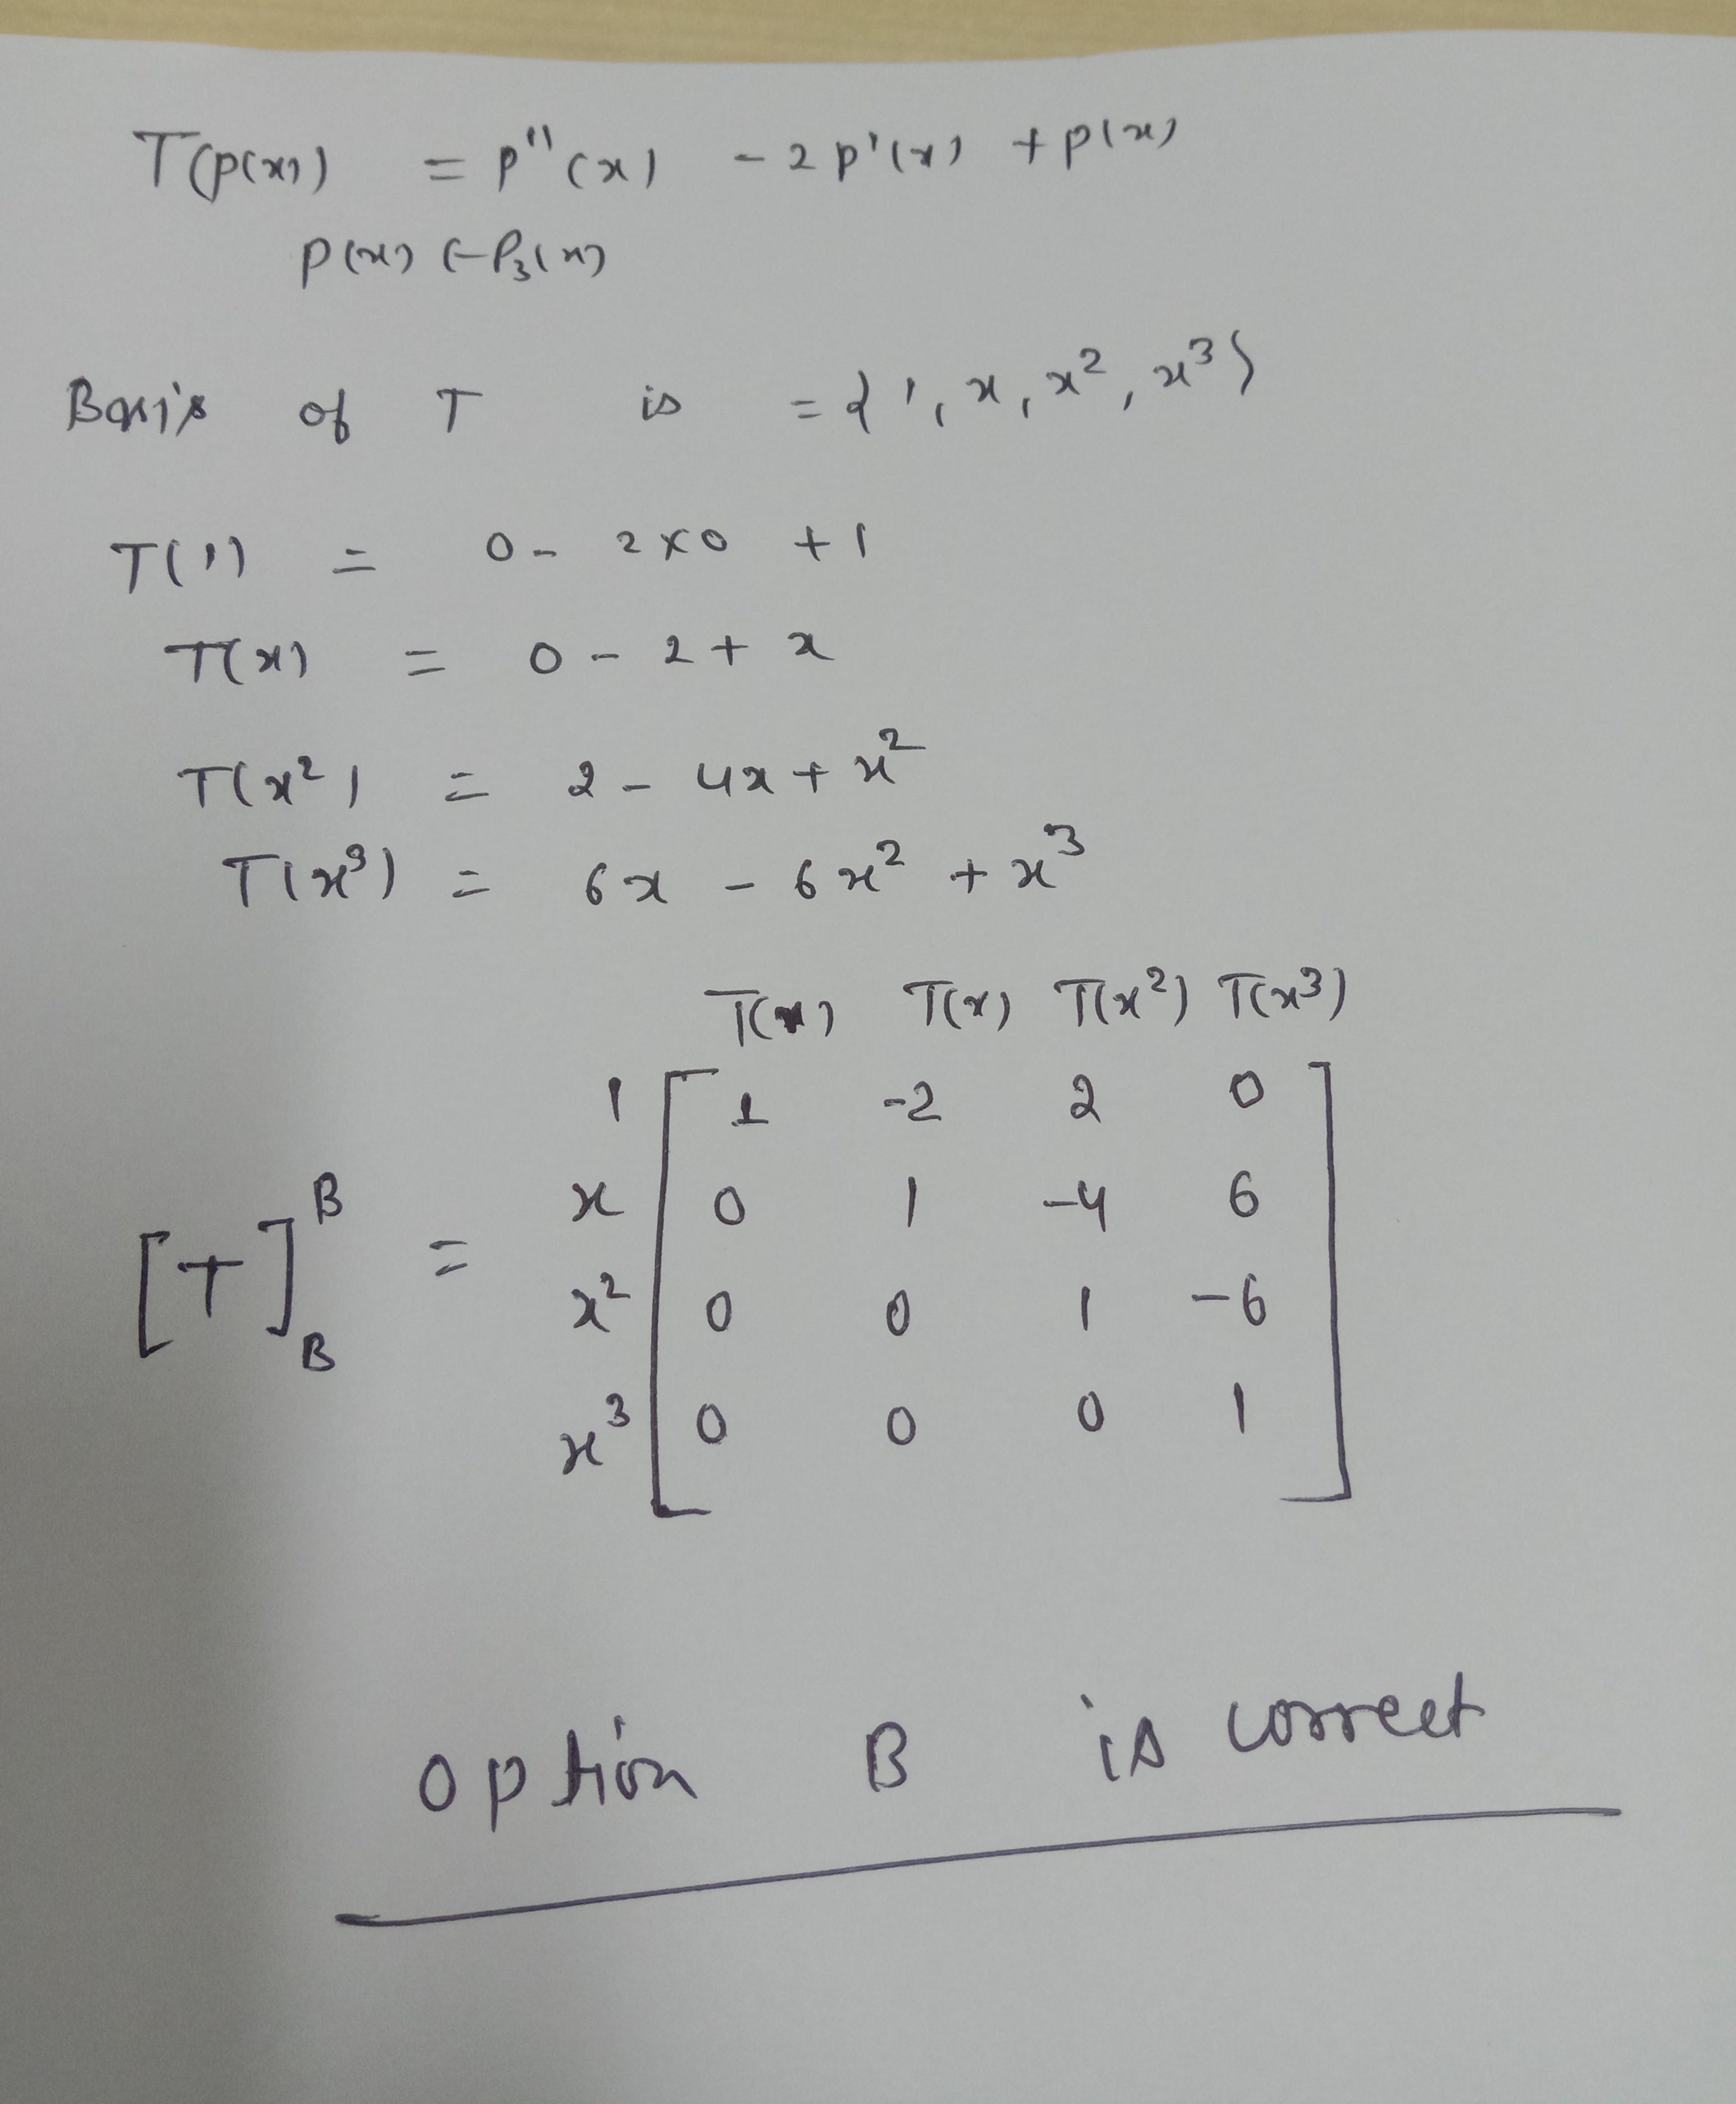 T(p(x)) = p''(x) - 2p'(x) + p(x)
p(x) ∈ P₃(x)
Basis of T is = {1, x, x², x³}
T(1) = 0 - 2×0 + 1
T(x) = 0 - 2 + x
T(x²) = 2 - 4x + x²
T(x³) = 6x - 6x² + x³
T(x) T(x²) T(x³)
1 1 -2 2 0
x 0 1 -4 6
[T]ᴮ_B =
x² 0 0 1 -6
x³ 0 0 0 1
option B is correct